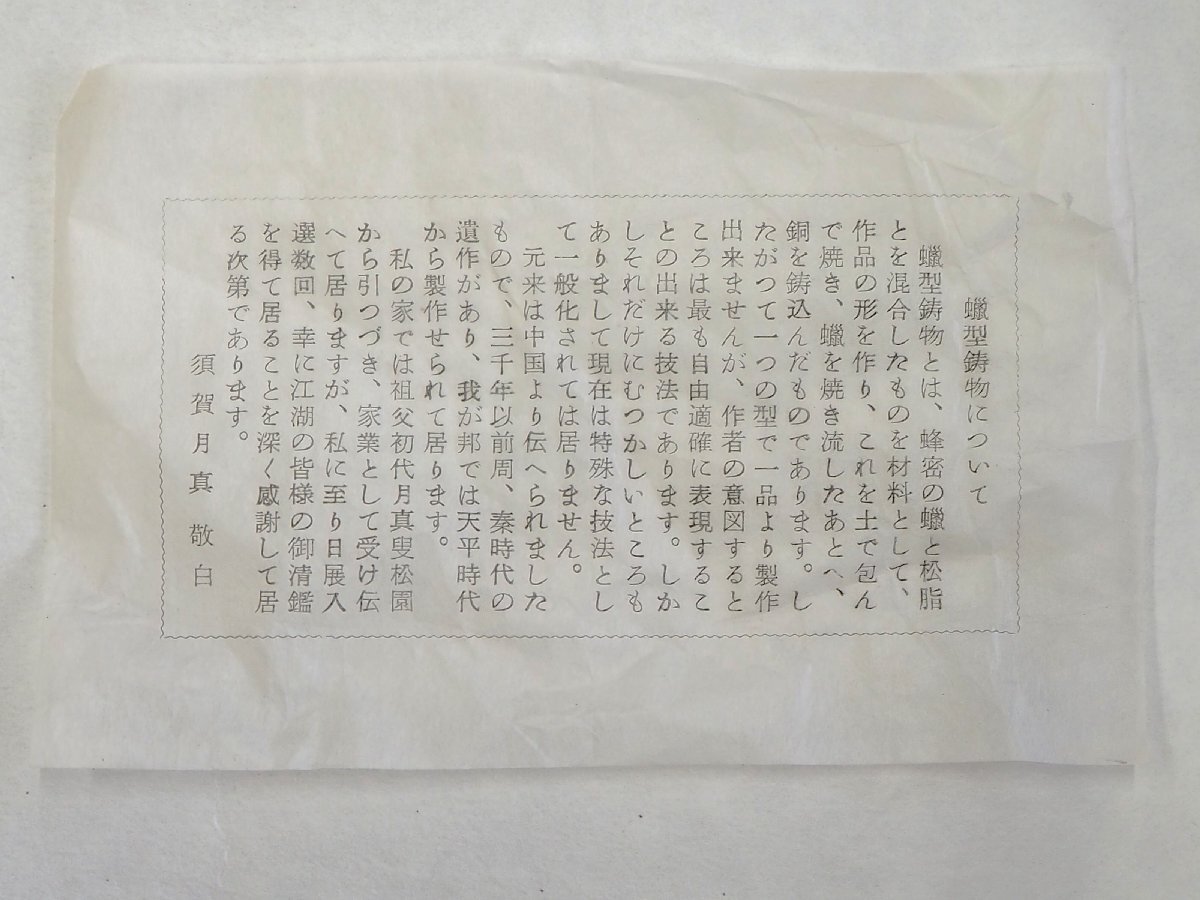 蠟型鋳物について
蠟型鋳物とは、蜂密の蠟と松脂
とを混合したものを材料として、
作品の形を作り、これを土で包ん
で焼き、蠟を焼き流したあとへ、
銅を鋳込んだものであります。し
たがつて一つの型で一品より製作
出来ませんが、作者の意図すると
ころは最も自由適確に表現するこ
との出来る技法であります。しか
しそれだけにむつかしいところも
ありまして現在は特殊な技法とし
て一般化されては居りません。
元来は中国より伝へられました
もので、三千年以前周、秦時代の
遺作があり、我が邦では天平時代
から製作せられて居ります。
私の家では祖父初代月真叟松園
から引つづき、家業として受け伝
へて居りますが、私に至り日展入
選数回、幸に江湖の皆様の御清鑑
を得て居ることを深く感謝して居
る次第であります。
須賀月真 敬白